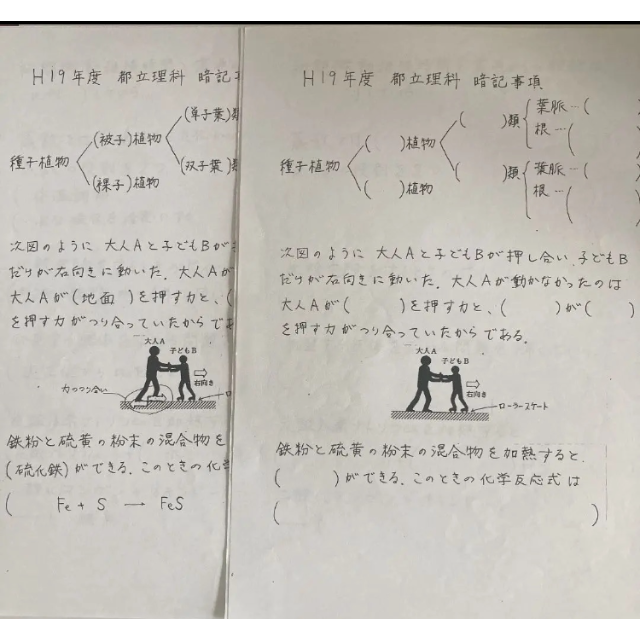 H19年度 都立理科 暗記
(単子葉)
(被子)植物
種子植物
(双子葉)
(裸子)植物
次図のように 大人Aと子どもBが
だけが右向きに動いた. 大人Aが
大人Aが(地面 )を押す力と、(
を押す力がつり合っていたからで
大人A
子どもB
右向き
力のつり合い
鉄粉と硫黄の粉末の混合物を
(硫化鉄)ができる. このときの化
( Fe + S → FeS
H19年度 都立理科 暗記事項
葉脈…(
( )類
根…(
( )植物
種子植物
葉脈…(
( )類
根…(
( )植物
次図のように 大人Aと子どもBが押し合い、子どもB
だけが右向きに動いた. 大人Aが動かなかったのは
大人Aが( )を押す力と、( )が( )
を押す力がつり合っていたからである.
大人A
子どもB
右向き
ローラースケート
鉄粉と硫黄の粉末の混合物を加熱すると、
( )ができる. このときの化学反応式は
( )